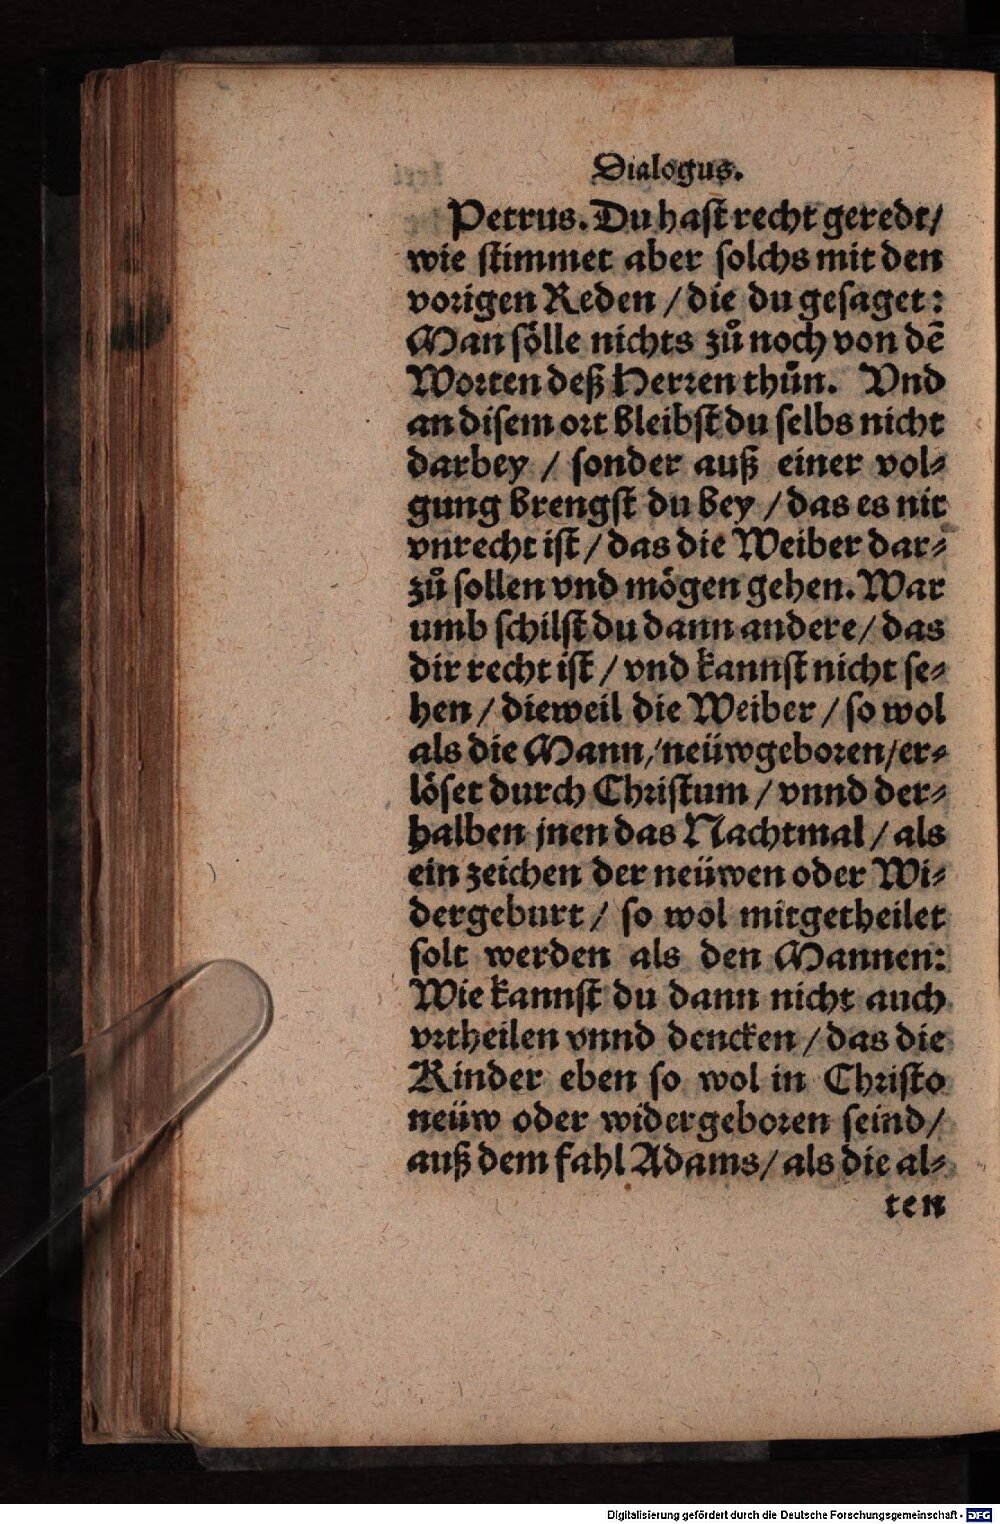 Dialogus.
Petrus. Du hast recht geredt/
wie stimmet aber solchs mit den
vorigen Reden / die du gesaget:
Man sölle nichts zů noch von dē
Worten deß Herren thůn. Vnd
an disem ort bleibst du selbs nicht
darbey / sonder auß einer vol⸗
gung brengst du bey / das es nit
vnrecht ist / das die Weiber dar⸗
zů sollen vnd mögen gehen. War
umb schilst du dann andere/ das
dir recht ist / vnd kannst nicht se⸗
hen / dieweil die Weiber / so wol
als die Mann/ neüwgeboren/er⸗
löset durch Christum / vnnd der⸗
halben jnen das Nachtmal / als
ein zeichen der neüwen oder Wi⸗
dergeburt / so wol mitgetheilet
solt werden als den Mannen:
Wie kannst du dann nicht auch
vrtheilen vnnd dencken / das die
Kinder eben so wol in Christo
neüw oder widergeboren seind/
auß dem fahl Adams/ als die al⸗
ten
Digitalisierung gefördert durch die Deutsche Forschungsgemeinschaft - DFG